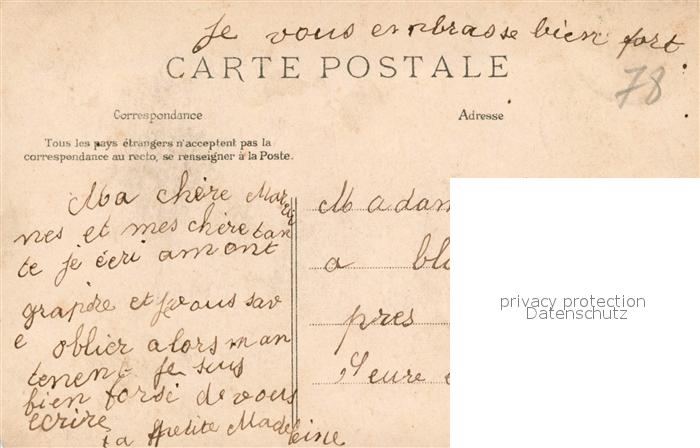 Je vous embrasse bien fort
CARTE POSTALE
78
Correspondance
Adresse
Tous les pays étrangers n'acceptent pas la
correspondance au recto, se renseigner à la Poste.
Ma chère
nes et mes chère tan
te je écri a mont
grapdre et je vous sav
e oblier alors man
tenent je suis
bien forsé de vous
ecrire
ta petite Madeleine
Madam
a bl
pres
Seure
privacy protection
Datenschutz